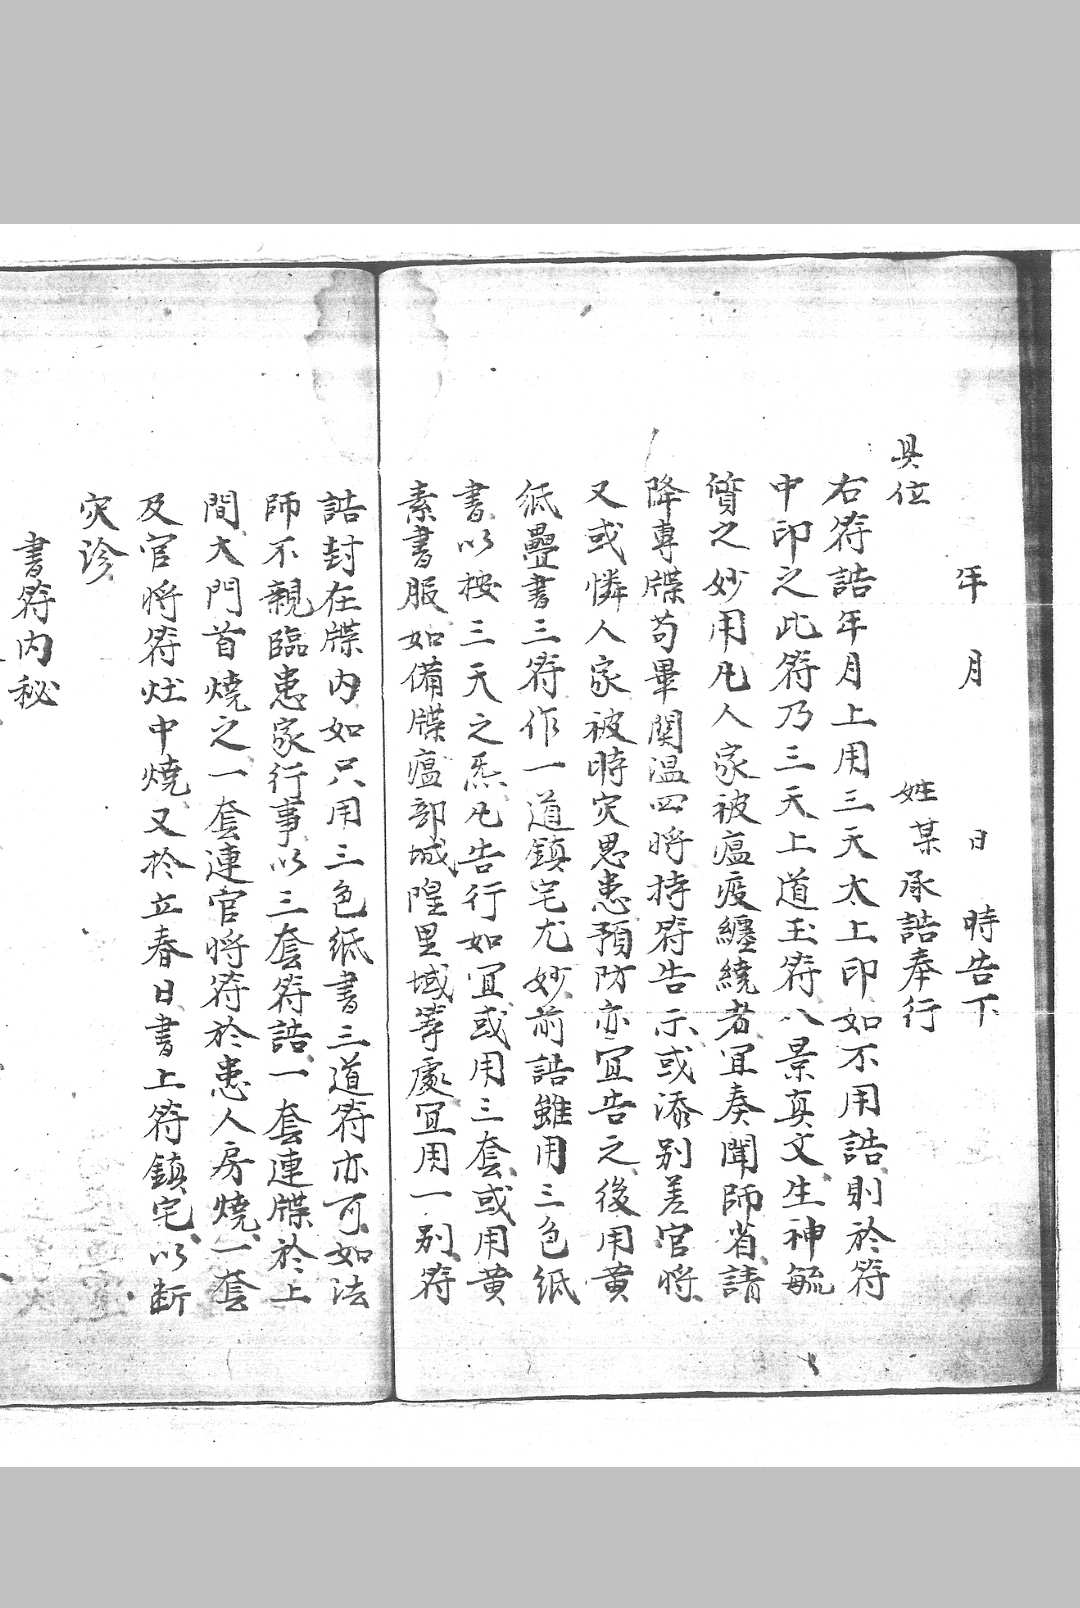 年　月　日　時告下
具位　姓某承誥奉行
右符誥年月上用三天太上印如不用誥則於符
中印之此符乃三天上道玉符八景真文生神毓
質之妙用凡人家被瘟疫纏繞者宜奏聞師省請
降專牒苟畢関温四將持符告示或添别差官將
又或憐人家被時灾思患預防亦宜告之後用黄
紙疊書三符作一道鎮宅尤妙前誥雖用三色紙
書以按三天之炁凡告行如宜或用三套或用黄
素書服如備牒瘟部城隍里域等處宜用一别符
誥封在牒内如只用三色紙書三道符亦可如法
師不親臨患家行事以三套符誥一套連牒於上
間大門首燒之一套連官將符於患人房燒一套
及官將符灶中燒又於立春日書上符鎮宅以断
灾診
書符内秘